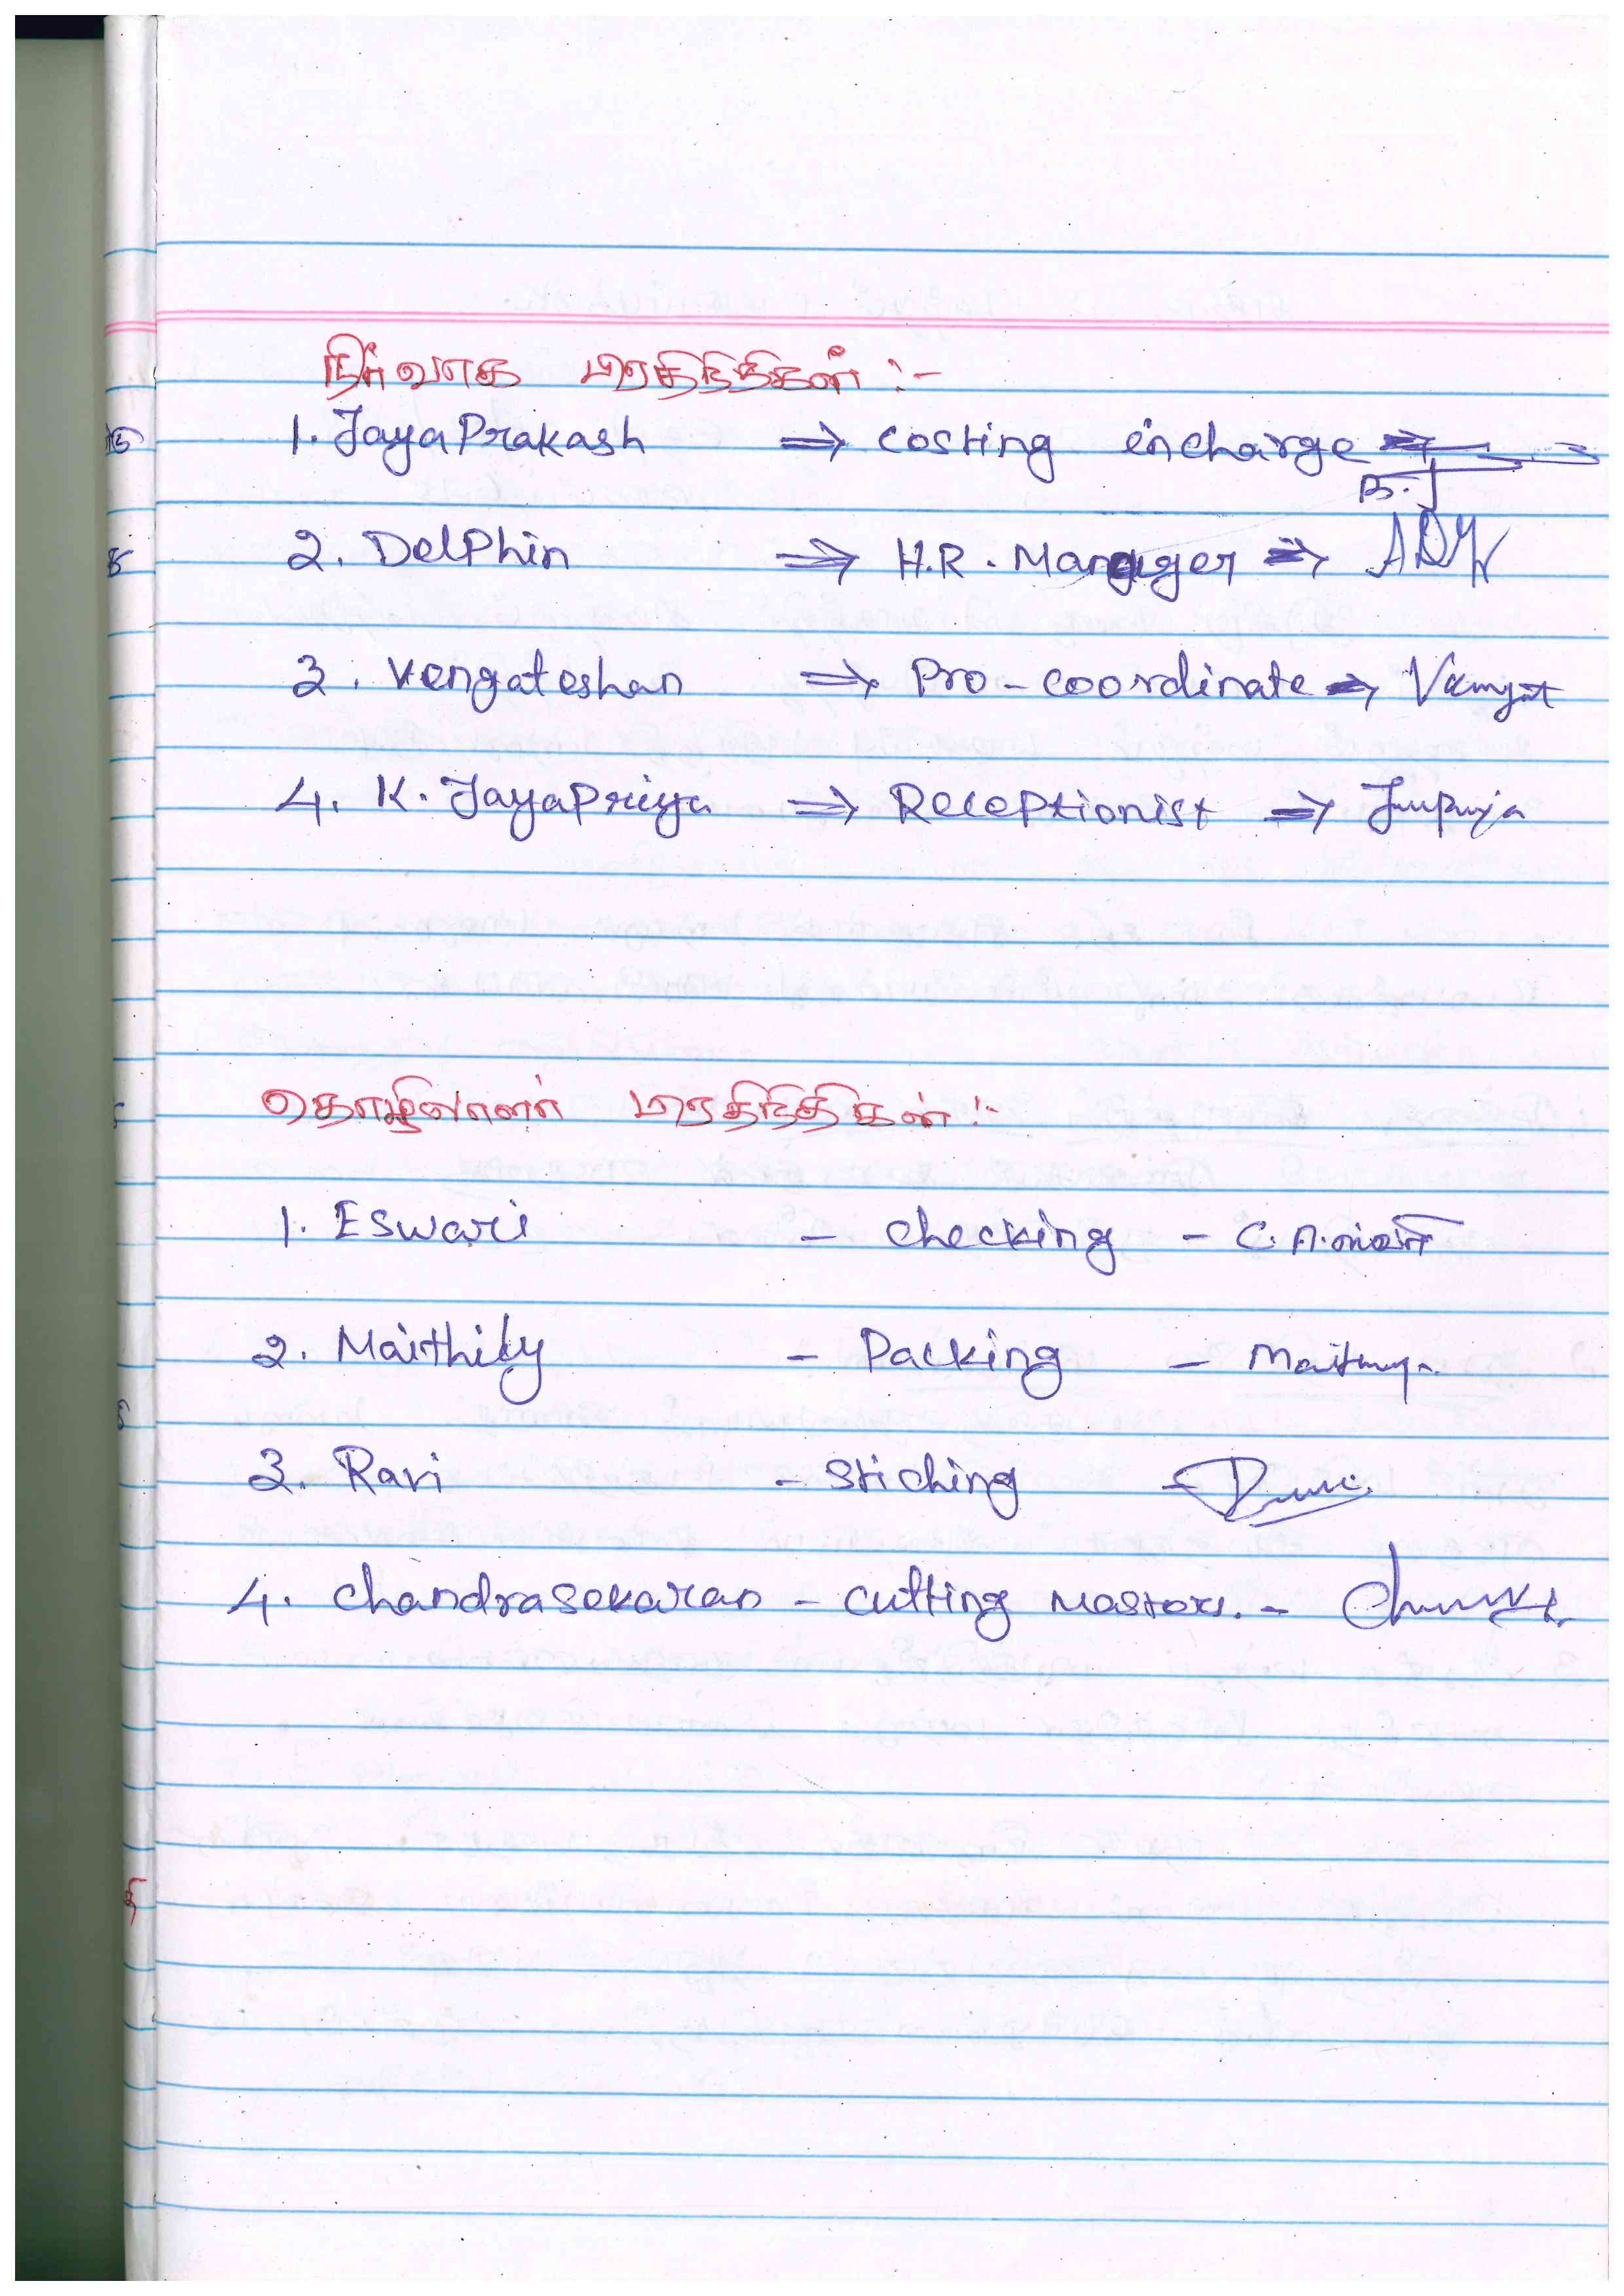 நிர்வாக பிரதிநிதிகள் :-
1. JayaPrakash ⇒ Costing incharge ⇒
B.J
2. DelPhin ⇒ H.R. Manager ⇒
3. Vengateshan ⇒ Pro - coordinate ⇒
4. K. JayaPriya ⇒ Receptionist ⇒
தொழிலாளர் பிரதிநிதிகள் :-
1. Eswari - checking -
2. Maithily - Packing -
3. Ravi - Stiching -
4. Chandrasekaran - cutting Masters. -